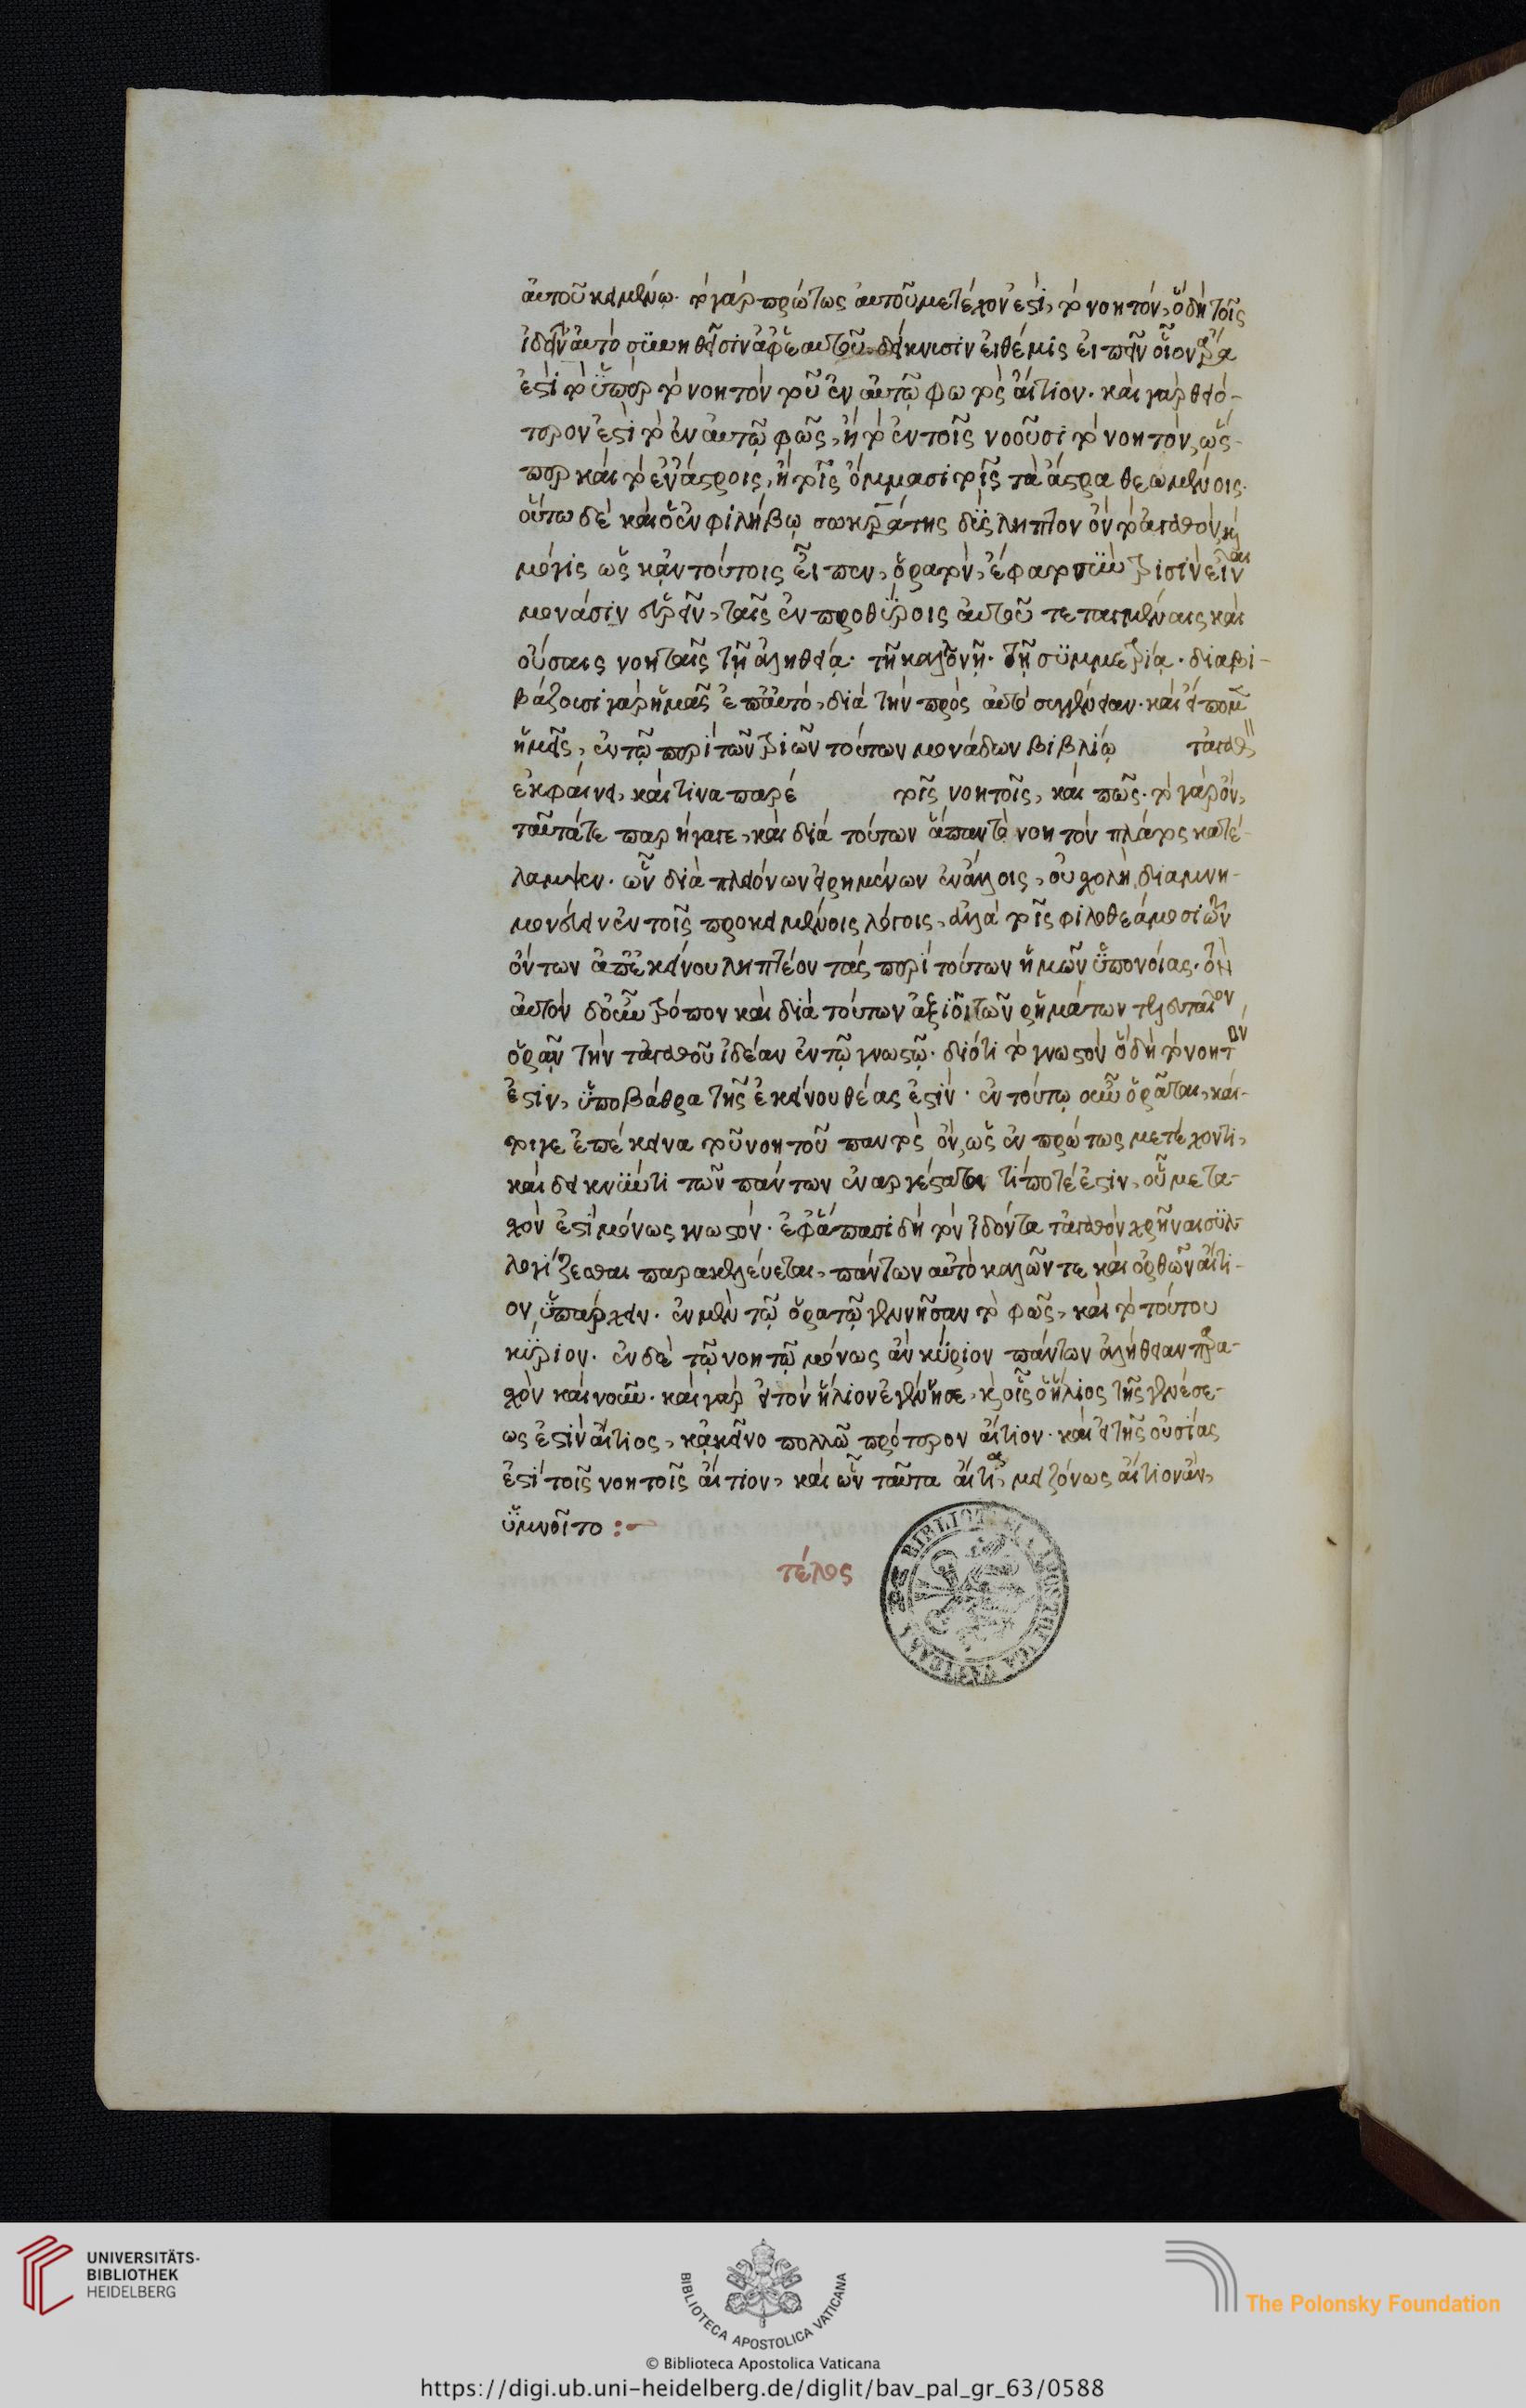 αὐτοῦ κειμένῳ. τὸ γὰρ πρώτως αὐτοῦ μετέχον ἐστὶ, τὸ νοητόν, ὃ δὴ τοῖς
ἰδεῖν αὐτὸ δείκνυσιν εἰ θέμις εἰπεῖν οἷον
ἐστὶ τὸ ὑπὲρ τὸ νοητὸν τοῦ ἐν αὐτῷ φωτὸς αἴτιον. καὶ γὰρ θειό-
τερον ἐστὶ τὸ ἐν αὐτῷ φῶς, ἢ τὸ ἐν τοῖς νοοῦσι τὸ νοητόν, ὥς-
περ καὶ τὸ ἐν ἄστροις, ἢ τοῖς ὄμμασι τοῖς τὰ ἄστρα θεωμένοις.
οὕτω δὲ καὶ ὁ ἐν φιλήβῳ σωκράτης δύσληπτον ὂν τὸ ἀγαθὸν καὶ
μόγις ὡς κἀν τούτοις εἶπεν, ὁρατὸν, ἔφατο σὺν τρισὶν εἶναι
μονάσιν εὑρεῖν, ταῖς ἐν προθύροις αὐτοῦ τεταγμέναις καὶ
οὔσαις νοηταῖς τῇ ἀληθείᾳ. τῇ καλλονῇ. τῇ συμμετρίᾳ. διαβι-
βάζουσι γὰρ ἡμᾶς ἐπ' αὐτὸ, διὰ τὴν πρὸς αὐτὸ συγγένειαν. καὶ εἴπομεν
ἡμεῖς, ἐν τῷ περὶ τῶν τριῶν τούτων μονάδων βιβλίῳ τἀγαθ
ἐκφαίνει, καὶ τίνα παρέ τοῖς νοητοῖς, καὶ πῶς. τὸ γὰρ ὂν,
ταῦτά τε παρήγαγε, καὶ διὰ τούτων ἅπαν τὸ νοητὸν πλάτος κατέ-
λαμψεν. ὧν διὰ πλειόνων εἰρημένων ἐν ἄλλοις, οὐ σχολὴ διαμνη-
μονεύειν ἐν τοῖς προκειμένοις λόγοις, ἀλλὰ τοῖς φιλοθεάμοσι τῶν
ὄντων ἀπ' ἐκείνου ληπτέον τὰς περὶ τούτων ἡμῶν ὑπονοίας. ὃν
αὐτὸν δ' οὖν τρόπον καὶ διὰ τούτων ἀξιοῖ τῶν ῥημάτων τελευταῖον
ὁρᾶν τὴν τἀγαθοῦ ἰδέαν ἐν τῷ γνωστῷ. διότι τὸ γνωστὸν ὃ δὴ τὸ νοητόν
ἐστιν, ὑποβάθρα τῆς ἐκείνου θέας ἐστίν. ἐν τούτῳ οὖν ὁρᾶται, καί-
τοι γε ἐπέκεινα τοῦ νοητοῦ παντὸς ὂν, ὡς ἐν πρώτως μετέχοντι,
καὶ δεικνύντι τῶν πάντων ἐναργέστατα τί ποτέ ἐστιν, οὗ μετα-
σχὸν ἐστὶ μόνως γνωστόν. ἐφ' ἅπασι δὴ τὸν ἰδόντα τἀγαθὸν χρῆναι συλ-
λογίζεσθαι παρακελεύεται, πάντων αὐτὸ καλῶν τε καὶ ὀρθῶν αἴτι-
ον, ὑπάρχειν. ἐν μὲν τῷ ὁρατῷ γεννῆσαν τὸ φῶς, καὶ τὸ τούτου
κύριον. ἐν δὲ τῷ νοητῷ μόνως ἂν κύριον πάντων ἀλήθειαν παρα-
σχὸν καὶ νοῦν. καὶ γὰρ εἰ τὸν ἥλιον ἐγέννησε, καὶ οἷς ὁ ἥλιος τῆς γενέσε-
ως ἐστὶν αἴτιος, κἀκεῖνο πολλῷ πρότερον αἴτιον. καὶ εἰ τῆς οὐσίας
ἐστὶ τοῖς νοητοῖς αἴτιον, καὶ ὧν ταῦτα αἴτια, μειζόνως αἴτιον ἂν,
ὑμνοῖτο :~
τέλος
UNIVERSITÄTS-
BIBLIOTHEK
HEIDELBERG
BIBLIOTECA APOSTOLICA VATICANA
The Polonsky Foundation
© Biblioteca Apostolica Vaticana
https://digi.ub.uni-heidelberg.de/diglit/bav_pal_gr_63/0588